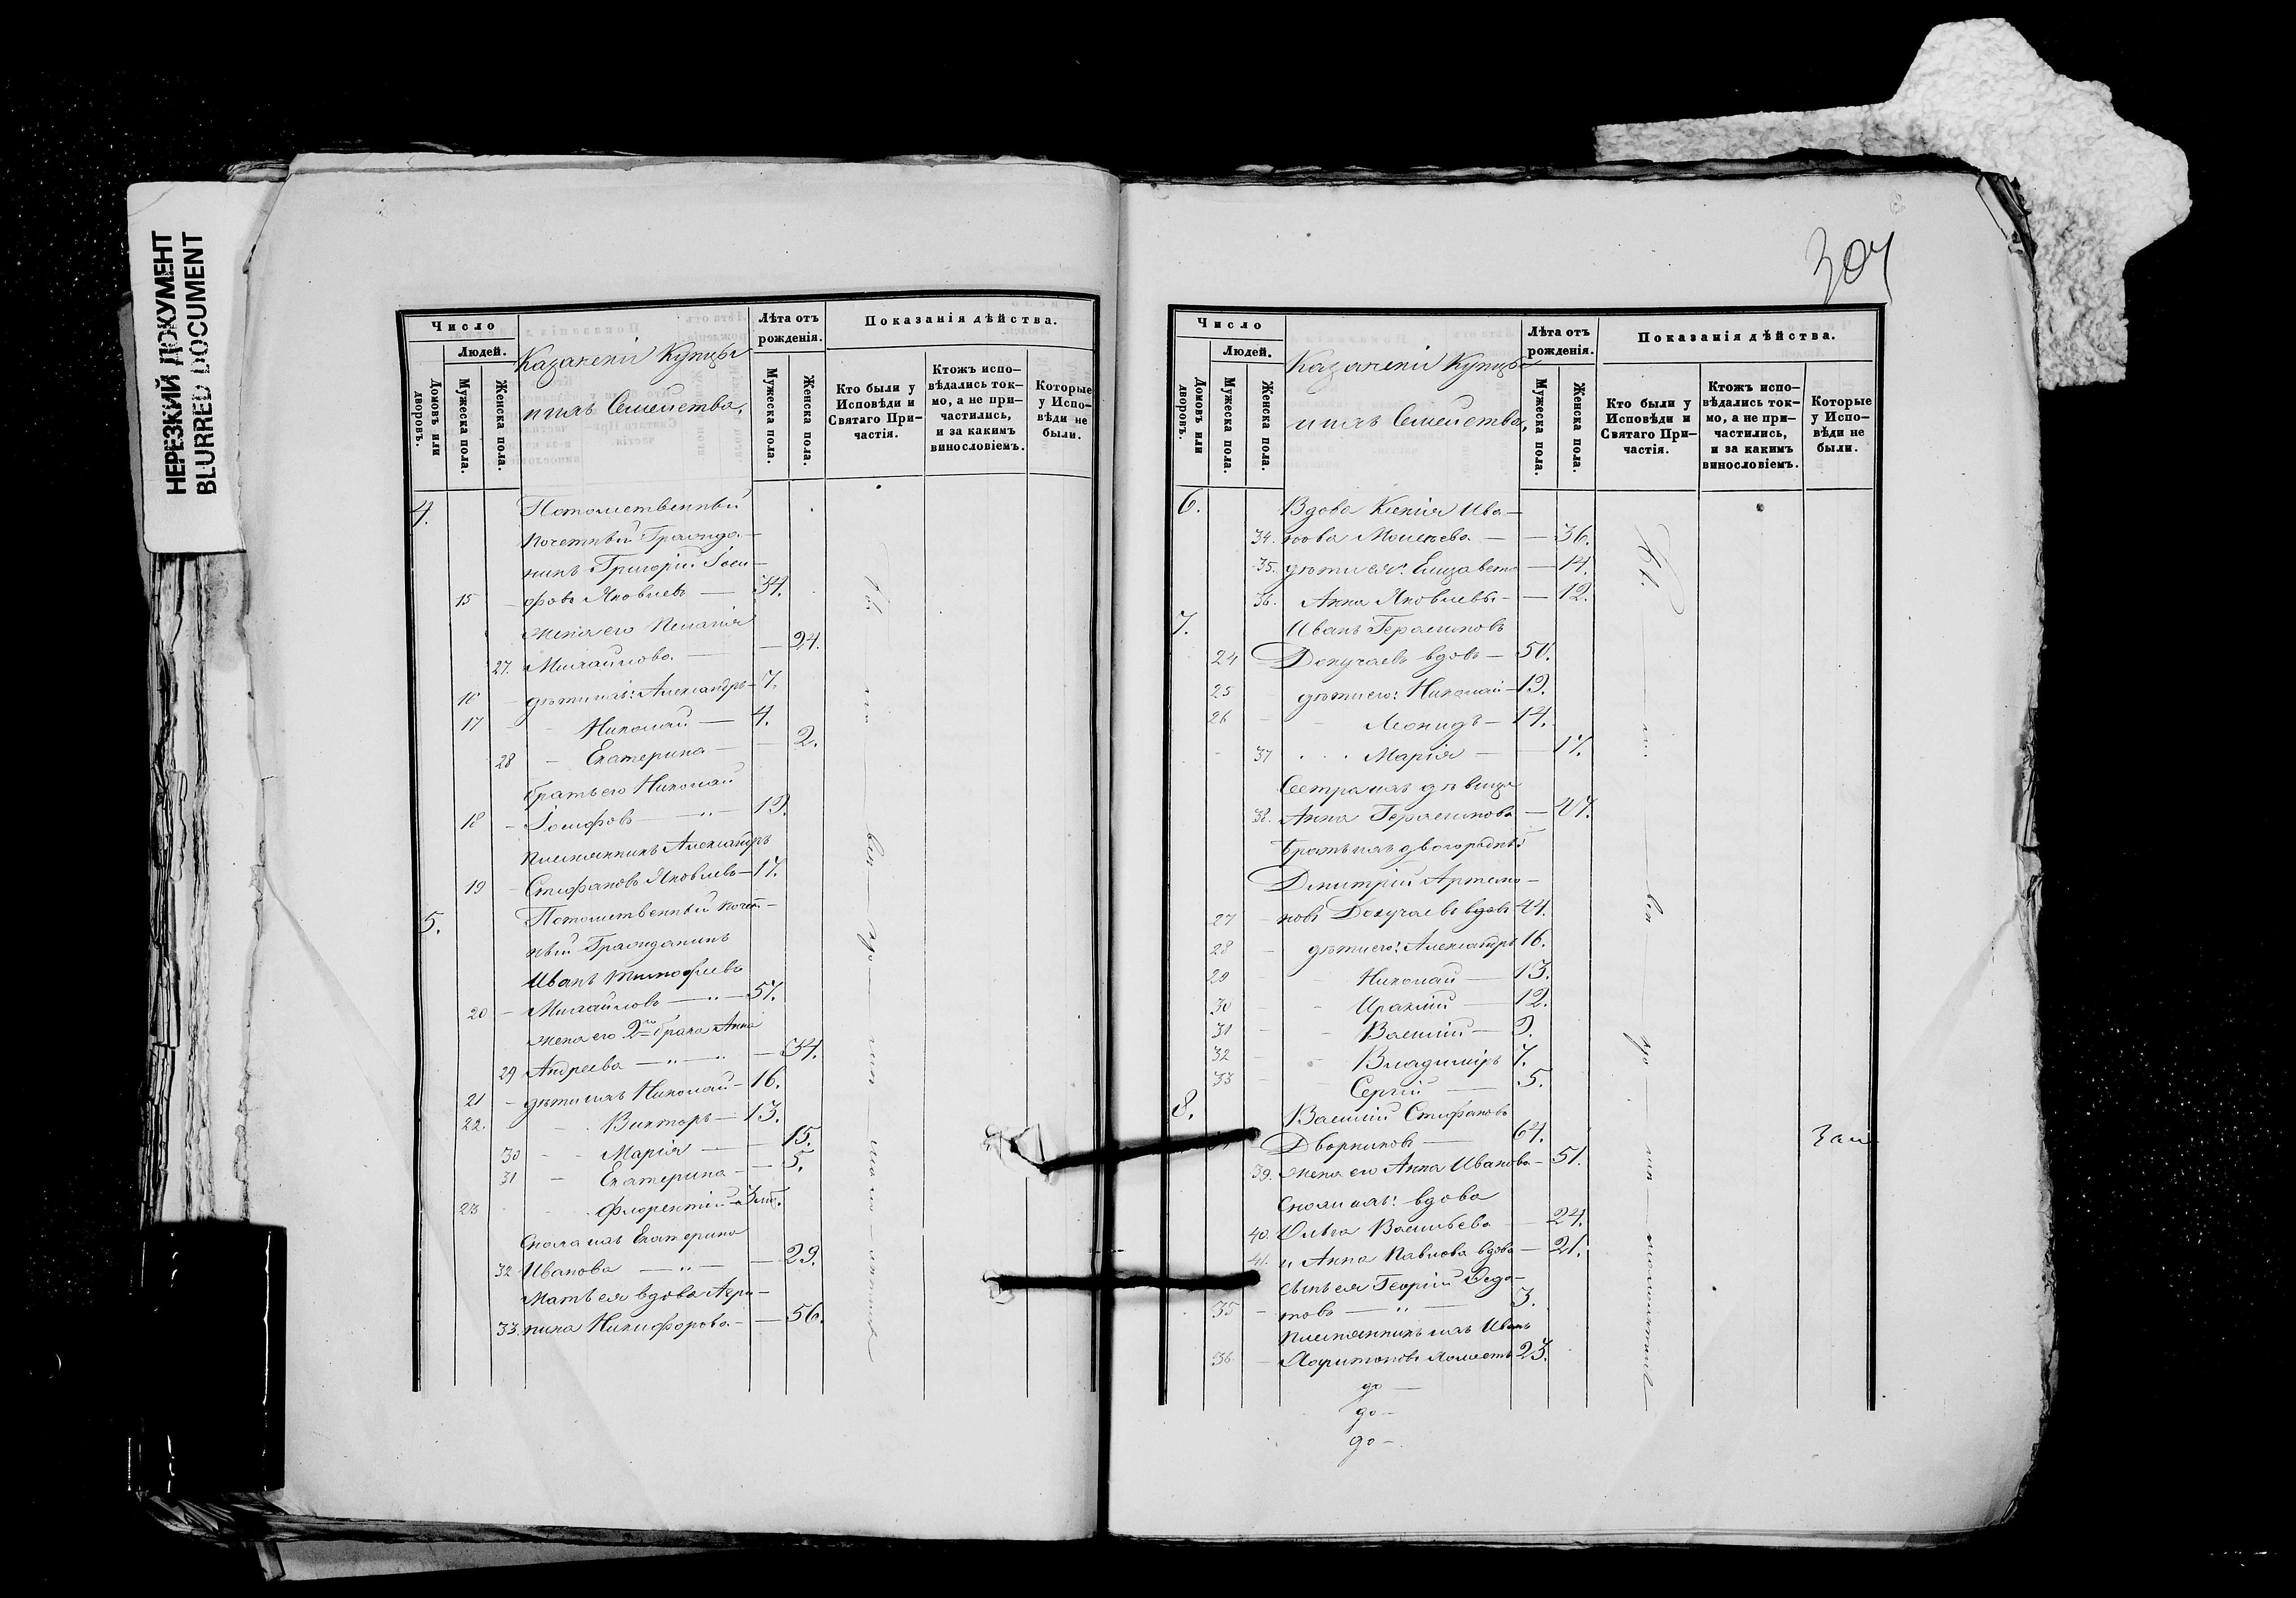 НЕРЕЗКИЙ ДОКУМЕНТ
BLURRED DOCUMENT
Число
Людей.
Домовъ или дворовъ.
Мужеска пола.
Женска пола.
Казанскіи Купцы
и ихъ Семейства,
Лѣта отъ рожденія.
Мужеска пола.
Женска пола.
Показанія дѣйства.
Кто были у Исповѣди и Святаго Причастія.
Ктожъ исповѣдались токмо, а не причастились, и за какимъ винословіемъ.
Которые у Исповѣди не были.
4. Потомственный
почетный Гражда-
нинъ Григорій Іоси-
15 - фовъ Яковлевъ — 34.
жена его Пелагія
27. Михайлова — 24.
16 - дѣти ихъ: Александръ - 7.
17 - Николай — 4.
28 - Екатерина — 2.
братъ его Николай
18 - Іосифовъ — 19.
племянникъ Александръ
19 - Стефановъ Яковлевъ — 17.
5. Потомственный почет-
ный Гражданинъ
Иванъ Тимофеевъ
20 - Михайловъ — 57.
жена его 2го брака Анна
29 Андреева — 34.
21 - дѣти ихъ Николай - 16.
22. Викторъ — 13.
30 - Марія — 15.
31 - Екатерина — 5.
23 - Флорентій
Сноха ихъ Екатерина
32 Иванова — 29.
Мать ея вдова Агри-
33. пина Никифорова — 56.
304
Число
Людей.
Домовъ или дворовъ.
Мужеска пола.
Женска пола.
Казанскіи Купцы
и ихъ Семейства,
Лѣта отъ рожденія.
Мужеска пола.
Женска пола.
Показанія дѣйства.
Кто были у Исповѣди и Святаго Причастія.
Ктожъ исповѣдались токмо, а не причастились, и за какимъ винословіемъ.
Которые у Исповѣди не были.
6. Вдова Ксенія Ива-
34. нова — 36.
35. дѣти ея: Елизавета — 14.
36. Анна Яковлевы — 12.
7. Иванъ Герасимовъ
24 Докучаевъ вдовъ — 50.
25 дѣти его: Николай — 19.
26 - Леонидъ — 14.
37 Марія — 17.
Сестра ихъ дѣвица
38. Анна Герасимова — 47.
Братъ ихъ двоюродный
Димитрій Артемо-
27 - новъ Докучаевъ вдовъ 44.
28 - дѣти его: Александръ 16.
29 - Николай — 13.
30 - Ираклій — 12.
31 - Василій — 9.
32 - Владиміръ 7.
33 - Сергій — 5.
8. Василій Стефановъ
Дворниковъ — 64.
39. жена его Анна Иванова — 51.
Снохи ихъ: вдова
40. Ольга Васильева — 24.
41. и Анна Павлова вдова — 21.
сынъ ея Георгій Ѳедо-
35 - товъ — 3.
племянникъ ихъ Иванъ
36. - Харитоновъ холостъ 23.
до —
до —
до —